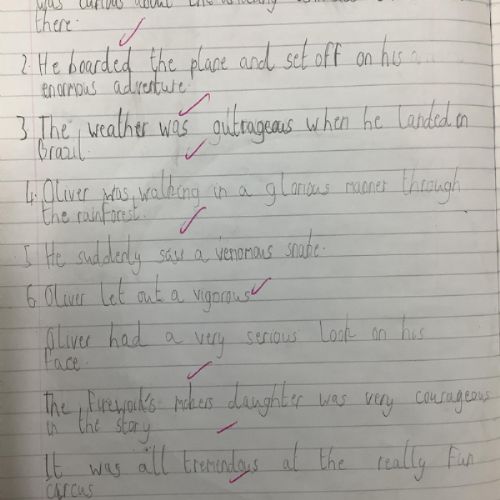 was curious about the
there.
2. He boarded the plane and set off on his
enormous adventure.
3 The weather was outrageous when he landed in
Brazil.
4. Oliver was walking in a glorious manner through
the rainforest.
5 He suddenly saw a venomous snake.
6 Oliver let out a vigorous
Oliver had a very serious look on his
face.
The Firework's makers daughter was very courageous
in the story
It was all tremendous at the really fun
circus